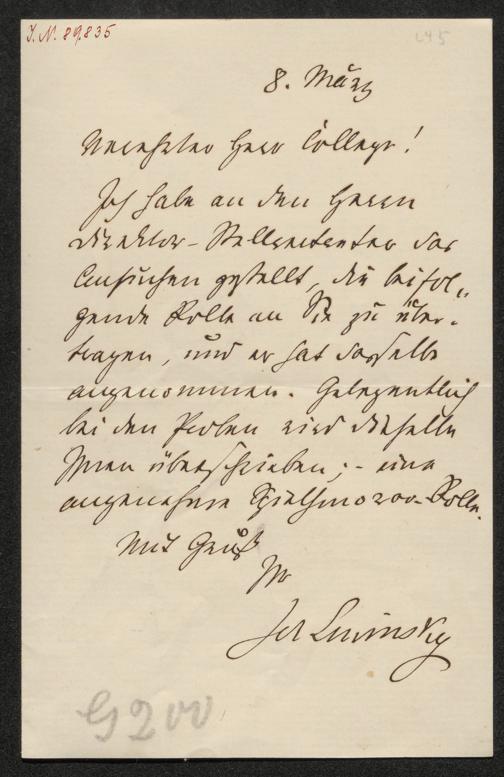 J.N. 89.835
8. März
Verehrter Herr College!
Ich habe an den Herrn
Direktor-Stellvertreter das
Ansuchen gestellt, die beifol-
gende Rolle an Sie zu über-
tragen, und er hat dasselbe
angenommen. Gelegentlich
bei den Proben wird dieselbe
Ihnen überschrieben; - eine
angenehme -Rolle.
Mit Gruß
Ihr
Jos Lewinsky
G 200